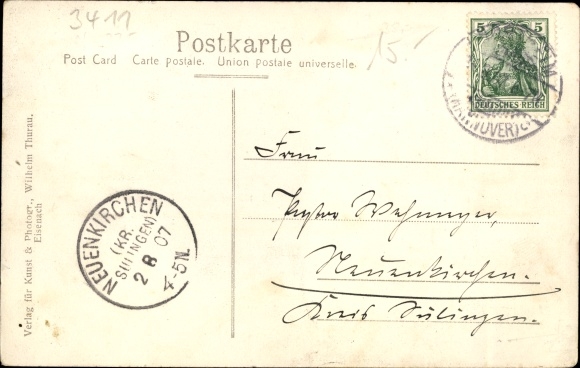 3411
15.-
Postkarte
Post Card Carte postale. Union postale universelle.
5 5
DEUTSCHES REICH
(HANNOVER)
Verlag für Kunst & Photogr., Wilhelm Thurau,
Eisenach
NEUENKIRCHEN
(KR.
2 8 07
4-5N.
Frau
Pastor
Neuenkirchen.
Kreis Sulingen.